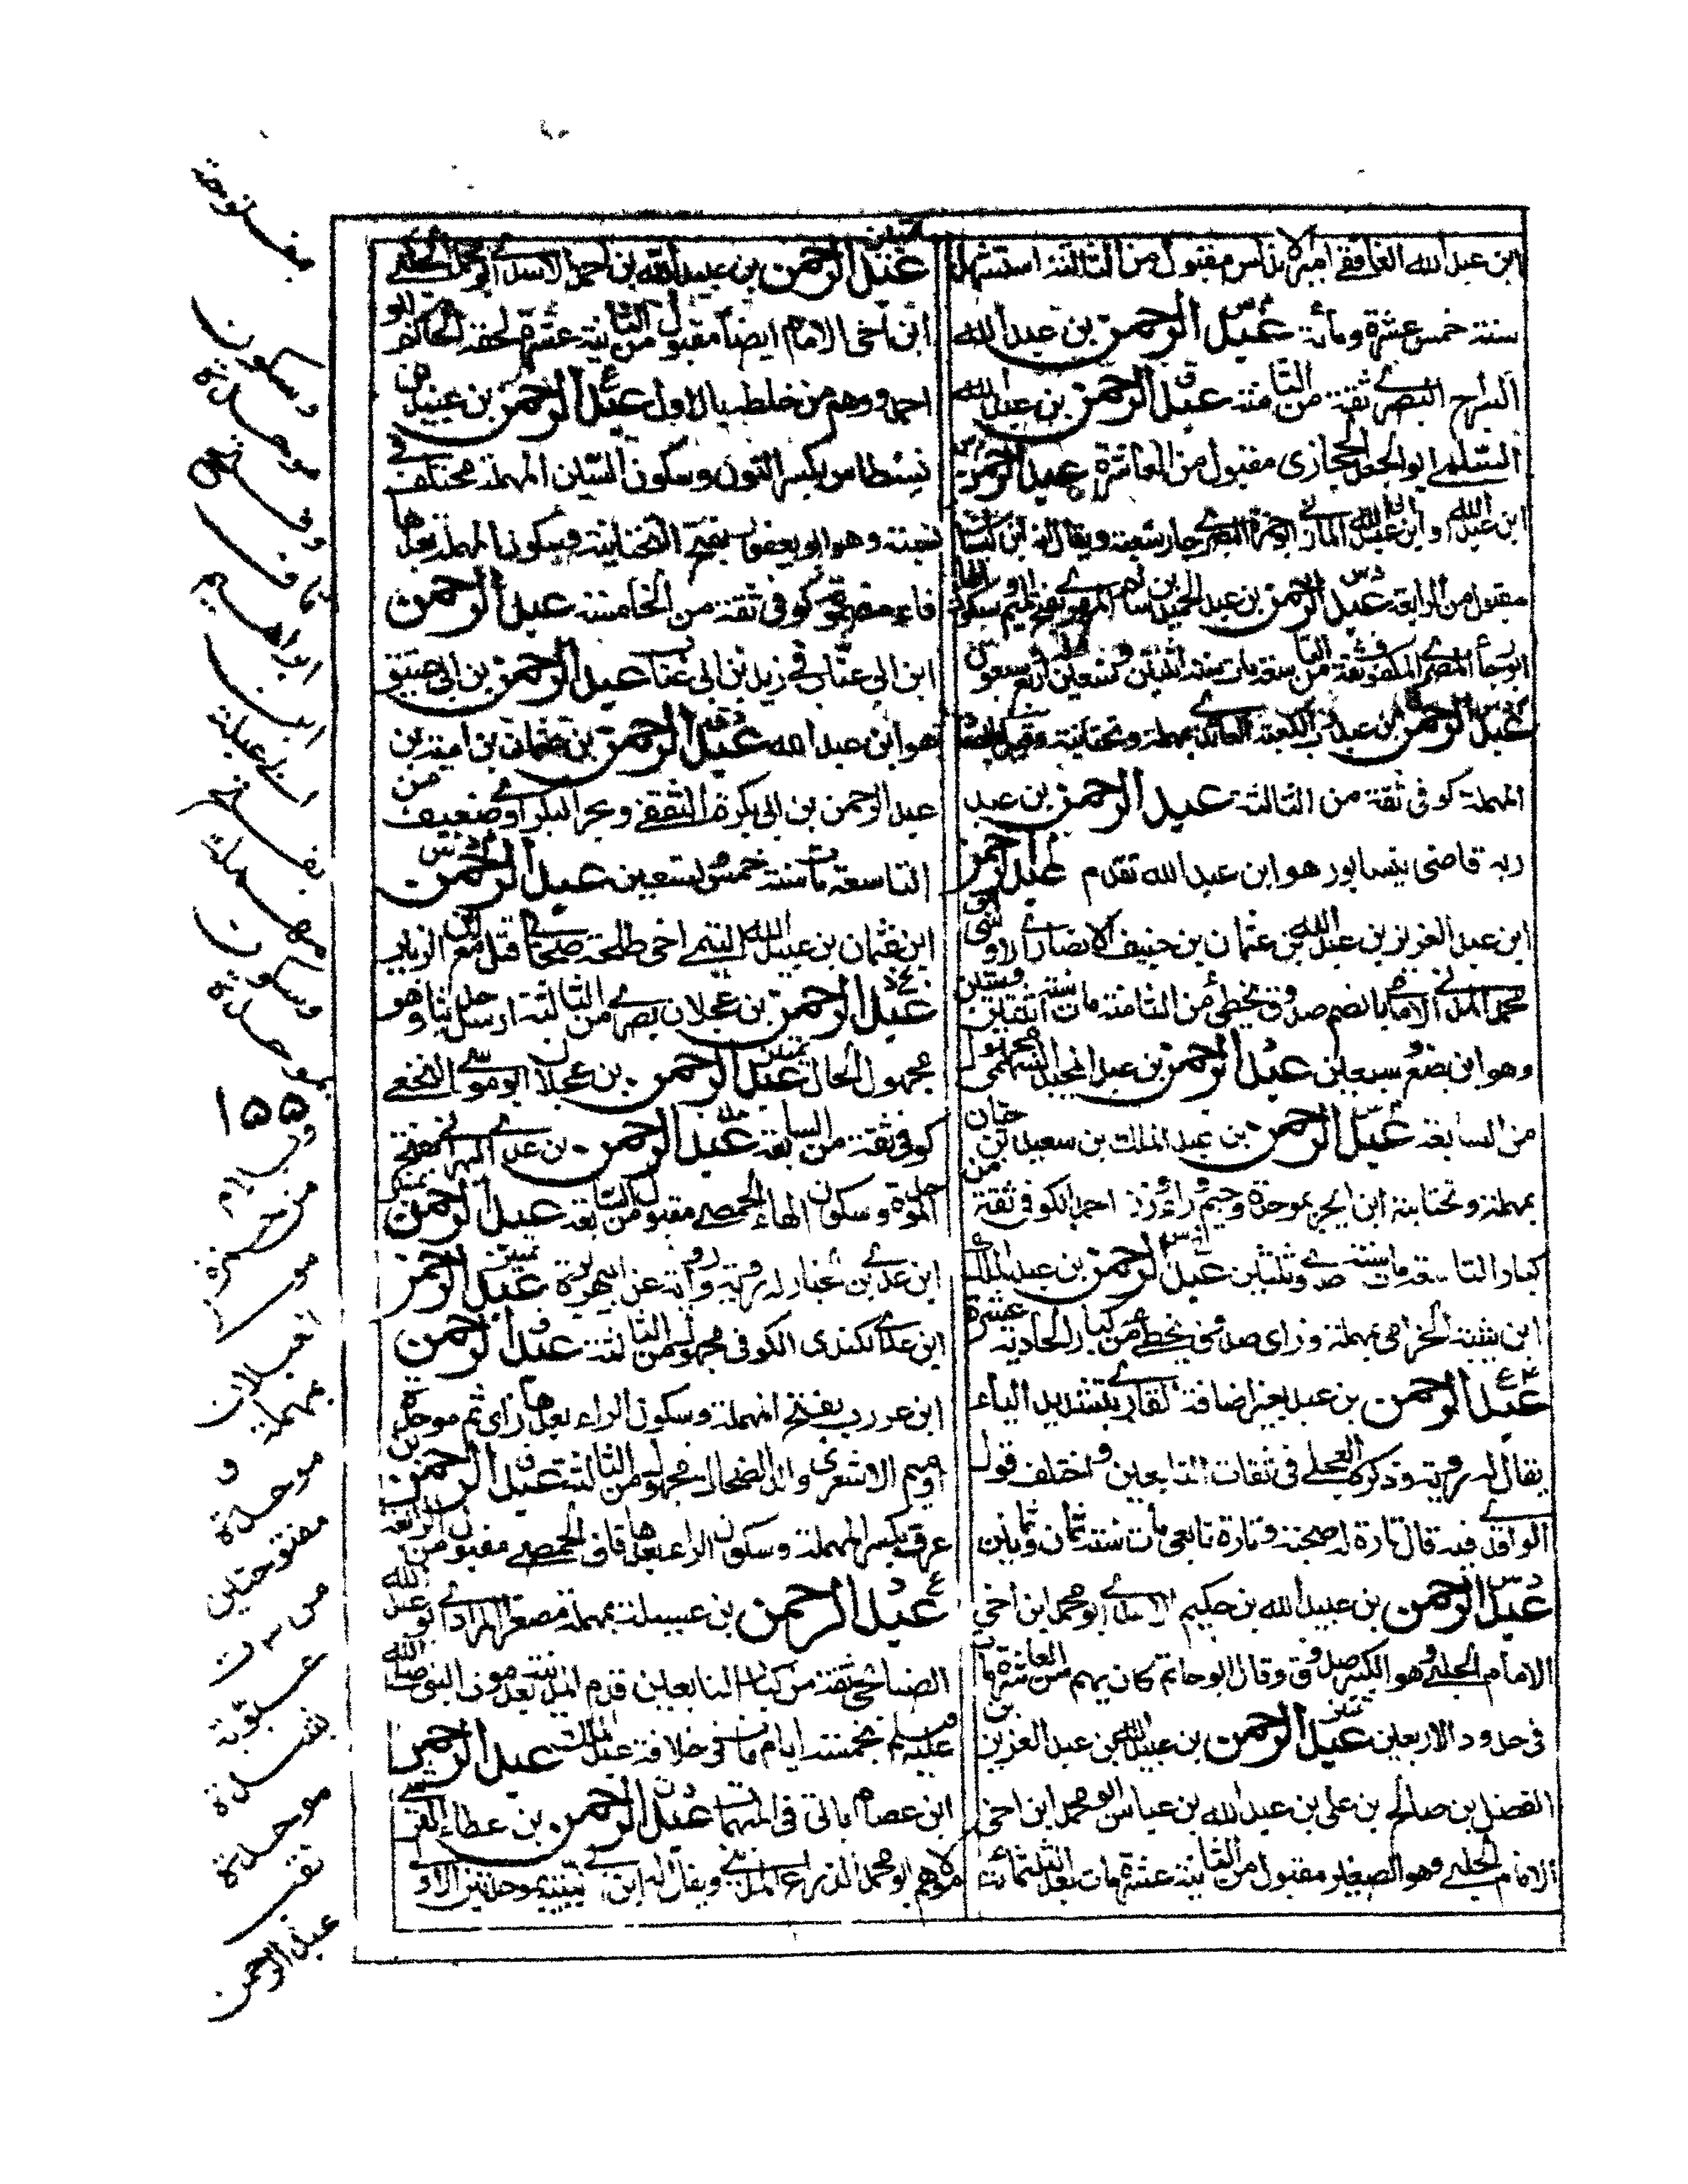 ابن عبد الله الغافقي امير الاندلس مقبول من الثالثة استشهد
سنة خمس عشرة ومائة عبد الرحمن بن عبد الله
السراج البصري ثقة من الثامنة عبد الرحمن بن عبد الله
السلمي ابو الجعد الحجازي مقبول من العاشرة عبد الرحمن
ابن عبد الله و ابن ابي عبد الله المازني ابو حمزة البصري جار شعبة ويقال انه ابن كيسان
مقبول من الرابعة عبد الرحمن بن عبد الحميد بن سالم المهري بفتح الميم وسكون الهاء
ابو رجاء المصري المكفوف ثقة من التاسعة مات سنة اثنتين وتسعين
عبد الرحمن بن عبد رب الكعبة العائذي بمهملة وتحتانية وقيل
المهملة كوفي ثقة من الثالثة عبد الرحمن بن عبد
ربه قاضي نيسابور هو ابن عبد الله تقدم عبد الرحمن
ابن عبد العزيز بن عبد الله بن عثمان بن حنيف الانصاري الاوسي ابو
محمد المدني الامامي بالضم صدوق يخطئ من الثامنة مات سنة اثنتين وستين
وهو ابن بضع وسبعين عبد الرحمن بن عبد المجيد السهمي مجهول
من السابعة عبد الرحمن بن عبد الملك بن سعيد بن حيان
بمهملة وتحتانية ابن ابجر بموحدة وجيم وراء وزن احمد الكوفي ثقة من
كبار التاسعة مات سنة احدى وثلثين عبد الرحمن بن عبد الملك
ابن شيبة الحزامي بمهملة وزاي صدوق يخطئ من كبار الحادية عشرة
عبد الرحمن بن عبد بغير اضافة القاري بتشديد الياء
يقال له رؤية وذكره العجلي في ثقات التابعين واختلف قول
الواقدي فيه قال تارة له صحبة وتارة تابعي مات سنة ثمان وثمانين
عبد الرحمن بن عبيد الله بن حكيم الاسدي ابو محمد ابن اخي
الامام الحلبي وهو الكبير صدوق وقال ابو حاتم كان يهم من العاشرة مات
في حدود الاربعين عبد الرحمن بن عبيد الله بن عبد العزيز بن
الفضل بن صالح بن علي بن عبد الله بن عباس ابو محمد ابن اخي
الامام الحلبي وهو الصغير مقبول من الثانية عشرة مات بعد الثلثمائة
عبد الرحمن بن عبيد الله بن احمد الاسدي ابو محمد الحلبي
ابن اخي الامام ايضا مقبول من الثانية عشرة لحقه الحاكم ابو
احمد ووهم من خلطه بالاول عبد الرحمن بن عبيد بن
نسطاس بكسر النون وسكون السين المهملة مختلف في
نسبته وهو ابو يعفور بفتح التحتانية وسكون المهملة بعدها
فاء مضمومة كوفي ثقة من الخامسة عبد الرحمن
ابن ابي عتاب في زيد بن ابي عتاب عبد الرحمن بن ابي عتيق
هو ابن عبد الله عبد الرحمن بن عثمان بن امية بن
عبد الرحمن بن ابي بكرة الثقفي ابو بحر البكراوي ضعيف من
التاسعة مات سنة خمس وتسعين عبد الرحمن
ابن عثمان بن عبيد الله التيمي اخي طلحة صحابي قتل مع ابن الزبير
عبد الرحمن بن عجلان بصري من الثالثة ارسل حديثا وهو
مجهول الحال عبد الرحمن بن عجلان ابو موسى النخعي
كوفي ثقة من السابعة عبد الرحمن بن عدي البهراني بفتح
الموحدة وسكون الهاء الحمصي مقبول من السابعة عبد الرحمن
ابن عدي بن الخيار له رؤية ورواية عن ابي هريرة عبد الرحمن
ابن عدي الكندي الكوفي مجهول من الثالثة عبد الرحمن
ابن عرزب بفتح المهملة وسكون الراء بعدها زاي ثم موحدة
او ميم الاشعري والد الضحاك مجهول من الثالثة عبد الرحمن بن
عرق بكسر المهملة وسكون الراء بعدها قاف الحمصي مقبول من الرابعة
عبد الرحمن بن عسيلة بمهملة مصغر المرادي ابو عبد الله
الصنابحي ثقة من كبار التابعين قدم المدينة بعد موت النبي صلى الله
عليه وسلم بخمسة ايام مات في خلافة عبد الملك عبد الرحمن
ابن عصام ياتي في المبهمات عبد الرحمن بن عطاء القرشي
مولاهم ابو محمد الذارع المدني ويقال له ابن ابي لبيبة بموحدتين الاو
وسكون
موحدة
ابراهيم
ابن
وسكون
موحدة
١٥٥
مهملة
و
موحدة
مفتوحتين
موحدة
عبد الرحمن